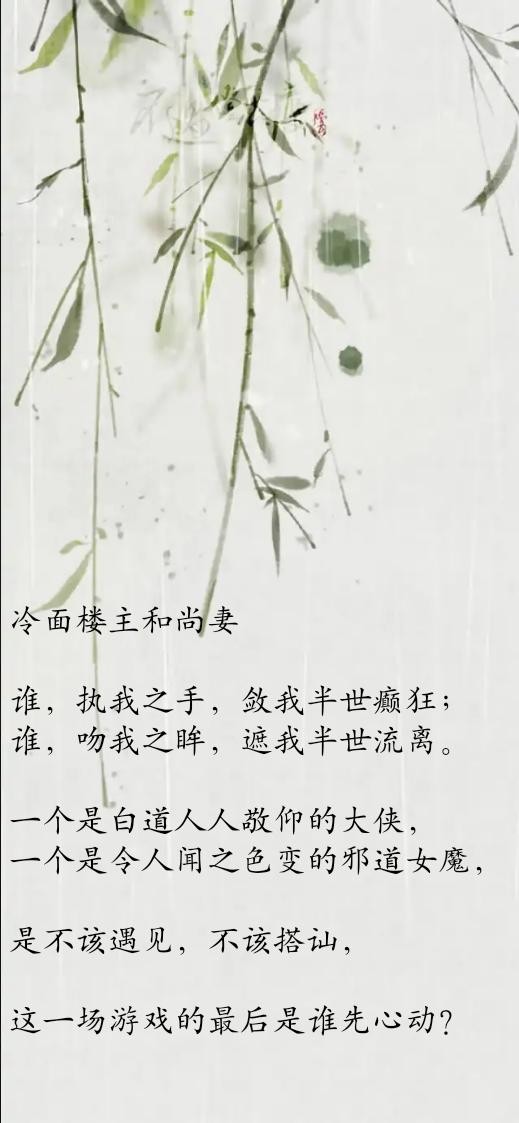 冷面楼主和尚妻
谁，执我之手，敛我半世癫狂；
谁，吻我之眸，遮我半世流离。
一个是白道人人敬仰的大侠，
一个是令人闻之色变的邪道女魔，
是不该遇见，不该搭讪，
这一场游戏的最后是谁先心动？